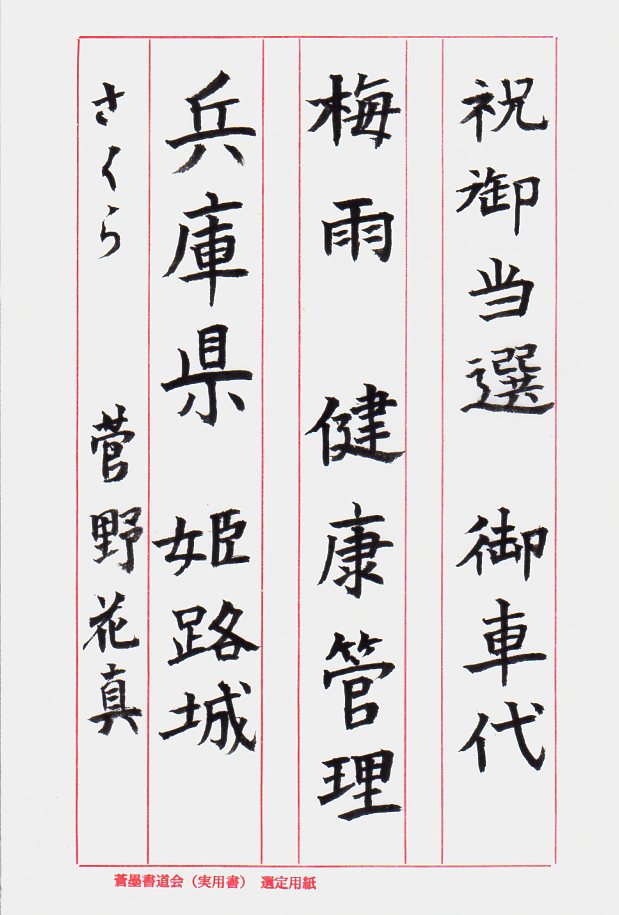 祝御当選　御車代
梅雨　健康管理
兵庫県　姫路城
さくら　菅野花真
蒼墨書道会（実用書）　選定用紙